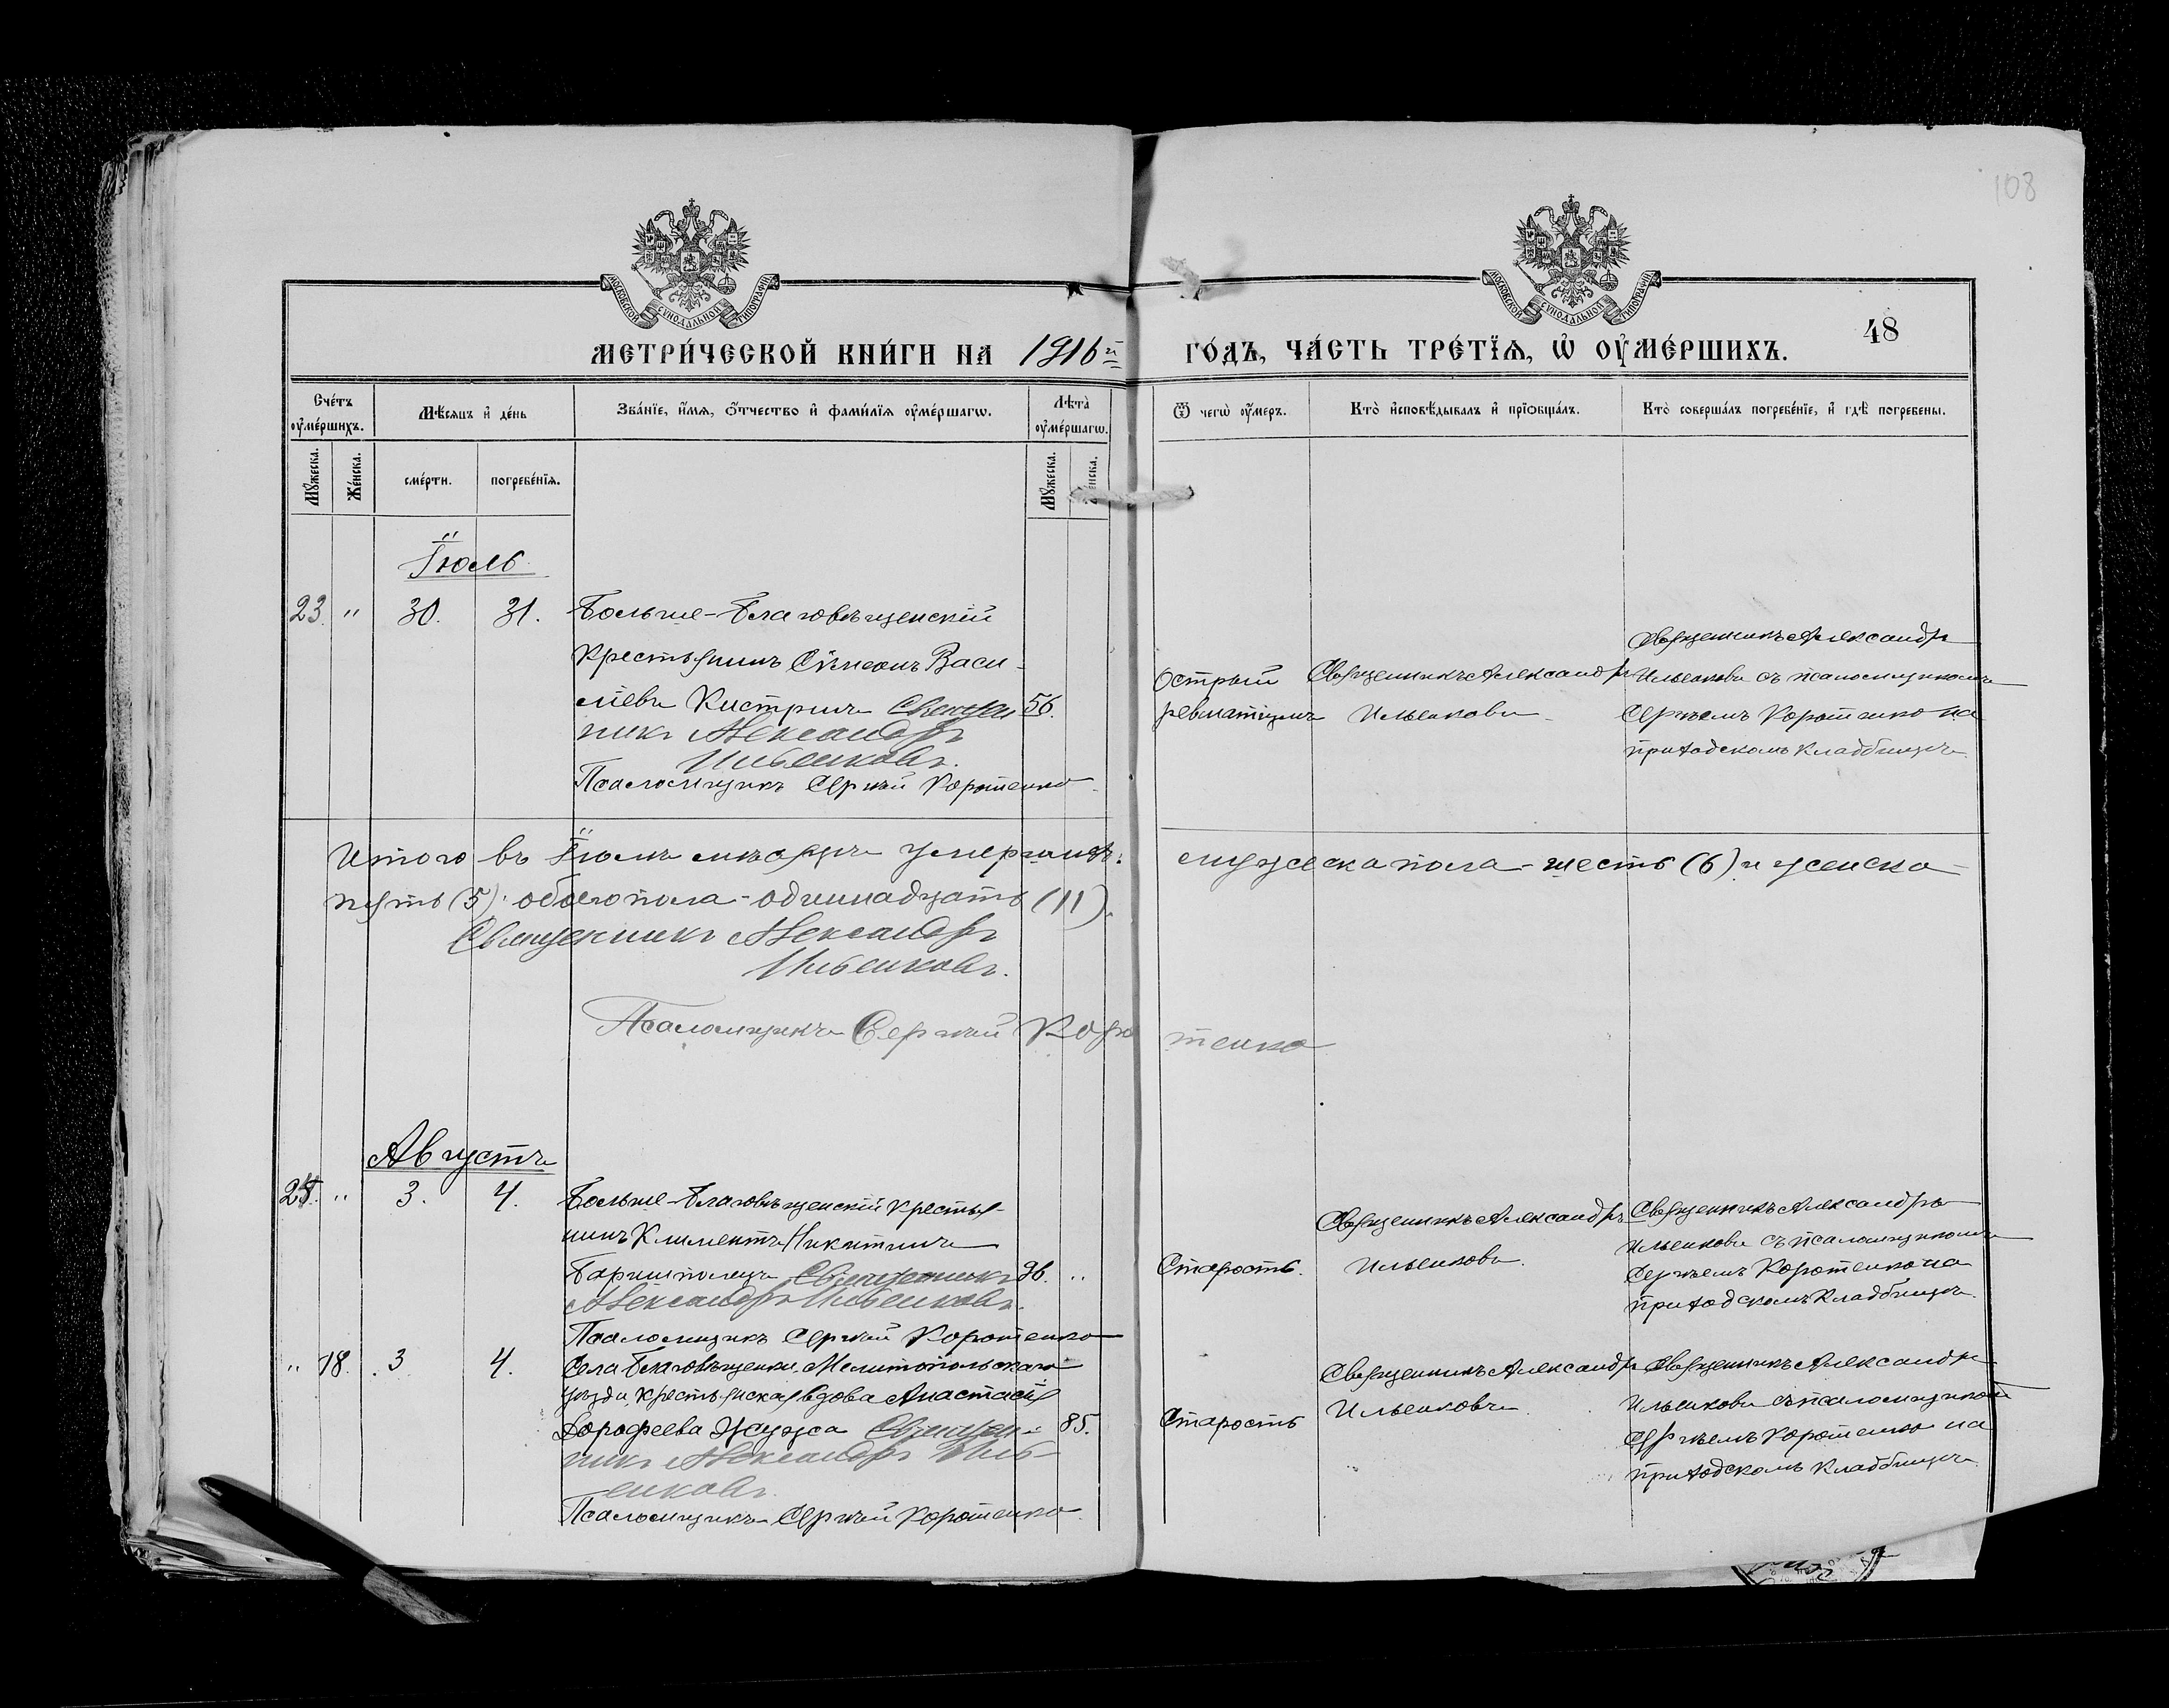 108
МОСКОВСКОЙ СѴНОДАЛЬНОЙ ТИПОГРАФІИ
МОСКОВСКОЙ СѴНОДАЛЬНОЙ ТИПОГРАФІИ
48
МЕТРИ́ЧЕСКОЙ КНИ́ГИ НА 1916й ГО́ДЪ, ЧА́СТЬ ТРЕ́ТЇѦ, Ѡ҆ ОУ҆МЕ́РШИХЪ.
Счéтъ оу҆мéршихъ.
Мѣ́сѧцъ и҆ дéнь
Звáнїе, и҆́мѧ, ѻ҆́тчество и҆ фами́лїѧ оу҆мéршагѡ.
Лѣ́та оу҆мéршагѡ.
Ѿ чегѡ̀ оу҆́меръ.
Ктò и҆сповѣ́дывалъ и҆ прїѡбщáлъ.
Ктò совершáлъ погребéнїе, и҆ гдѣ̀ погребены.
Мꙋ́жеска.
Жéнска.
смéрти.
погребéнїѧ.
Мꙋ́жеска.
Жéнска.
Іюль
23. " 30. 31. Больше-Благовѣщенскій
крестьянинъ Сѵмеонъ Васи-
ліевъ Кистринъ Священ 56.
никъ Александръ
Ильенковъ.
Псаломщикъ Сергѣй Коротенко.
Острый
ревматизмъ
Священникъ Александръ
Ильенковъ
Священникъ Александръ
Ильенковъ съ псаломщикомъ
Сергѣемъ Коротенко на
приходскомъ кладбищѣ.
Итого въ Іюлѣ мѣсяцѣ умершихъ: мужеска пола - шесть (6) и женска -
пять (5); обоего пола - одиннадцать (11).
Священникъ Александръ
Ильенковъ.
Псаломщикъ Сергѣй Коротенко
Августъ
24. " 3. 4. Больше-Благовѣщенскій крестья-
нинъ Климентъ Никитинъ
Бориполецъ Священникъ 96. "
Александръ Ильенковъ.
Псаломщикъ Сергѣй Коротенко
Старость.
Священникъ Александръ
Ильенковъ.
Священникъ Александръ
Ильенковъ съ псаломщикомъ
Сергѣемъ Коротенко на
приходскомъ кладбищѣ.
" 18. 3. 4. Села Благовѣщенки, Мелитопольскаго
уѣзда, крестьянская вдова Анастасія
Дорофеева Жужа Священ- 85.
никъ Александръ Иль-
енковъ.
Псаломщикъ Сергѣй Коротенко.
Старость
Священникъ Александръ
Ильенковъ
Священникъ Александръ
Ильенковъ съ псаломщикомъ
Сергѣемъ Коротенко на
приходскомъ кладбищѣ.